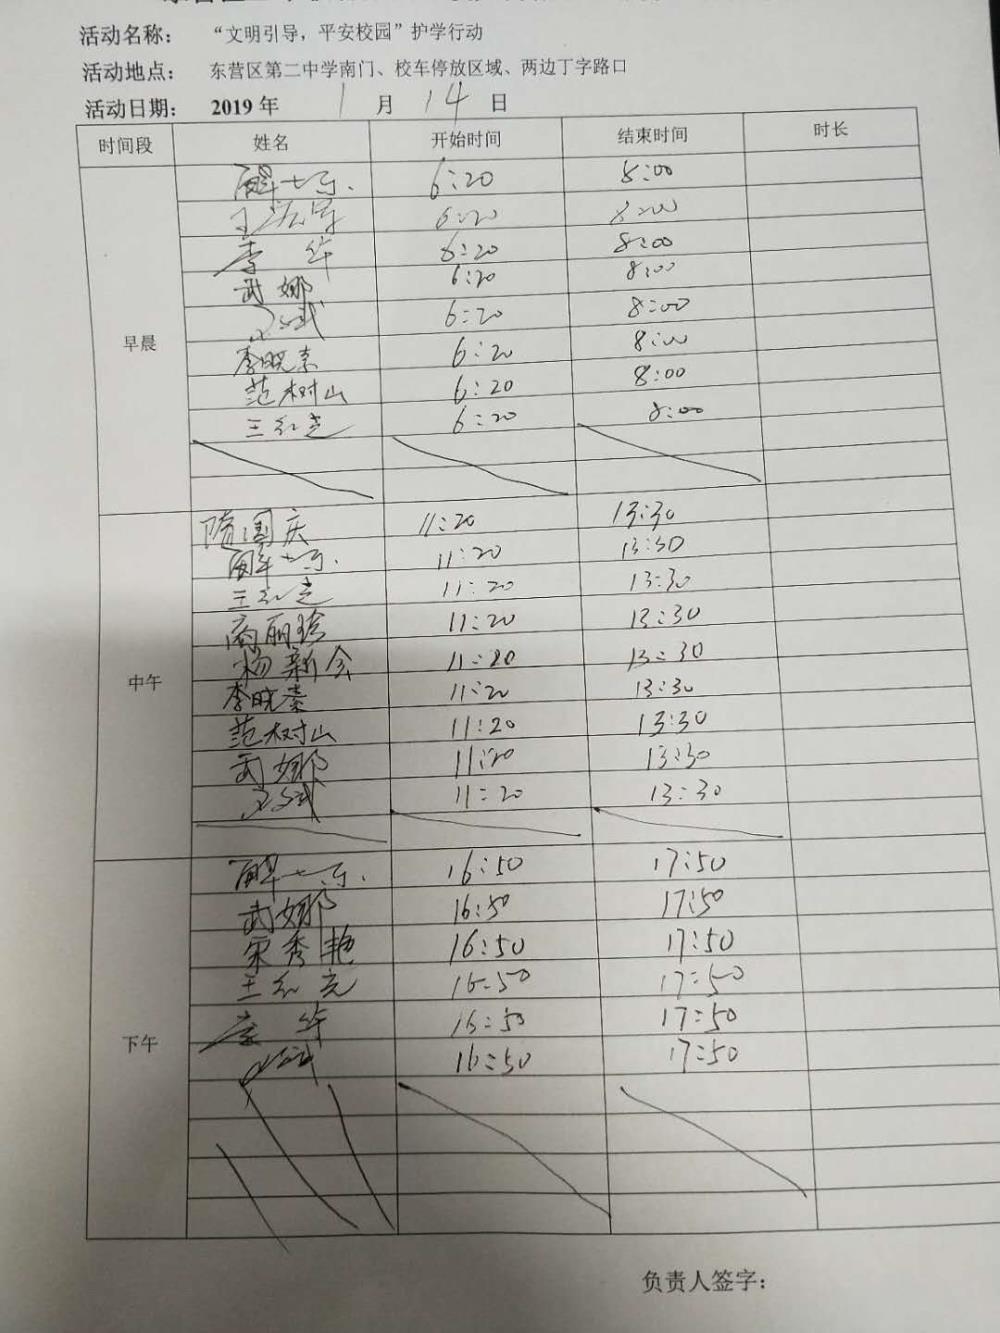 活动名称： “文明引导，平安校园”护学行动
活动地点： 东营区第二中学南门、校车停放区域、两边丁字路口
活动日期： 2019 年 1 月 14 日
时间段 姓名 开始时间 结束时间 时长
早晨
6:20 8:00
6:20 8:00
李华 6:20 8:00
武娜 6:20 8:00
6:20 8:00
李晓秦 6:20 8:00
范树山 6:20 8:00
王红亮 6:20 8:00
中午
隋国庆 11:20 13:30
11:20 13:30
王红亮 11:20 13:30
高丽珍 11:20 13:30
杨新会 11:20 13:30
李晓秦 11:20 13:30
范树山 11:20 13:30
武娜 11:20 13:30
11:20 13:30
下午
16:50 17:50
武娜 16:50 17:50
宋秀艳 16:50 17:50
王红亮 16:50 17:50
李华 16:50 17:50
16:50 17:50
负责人签字：